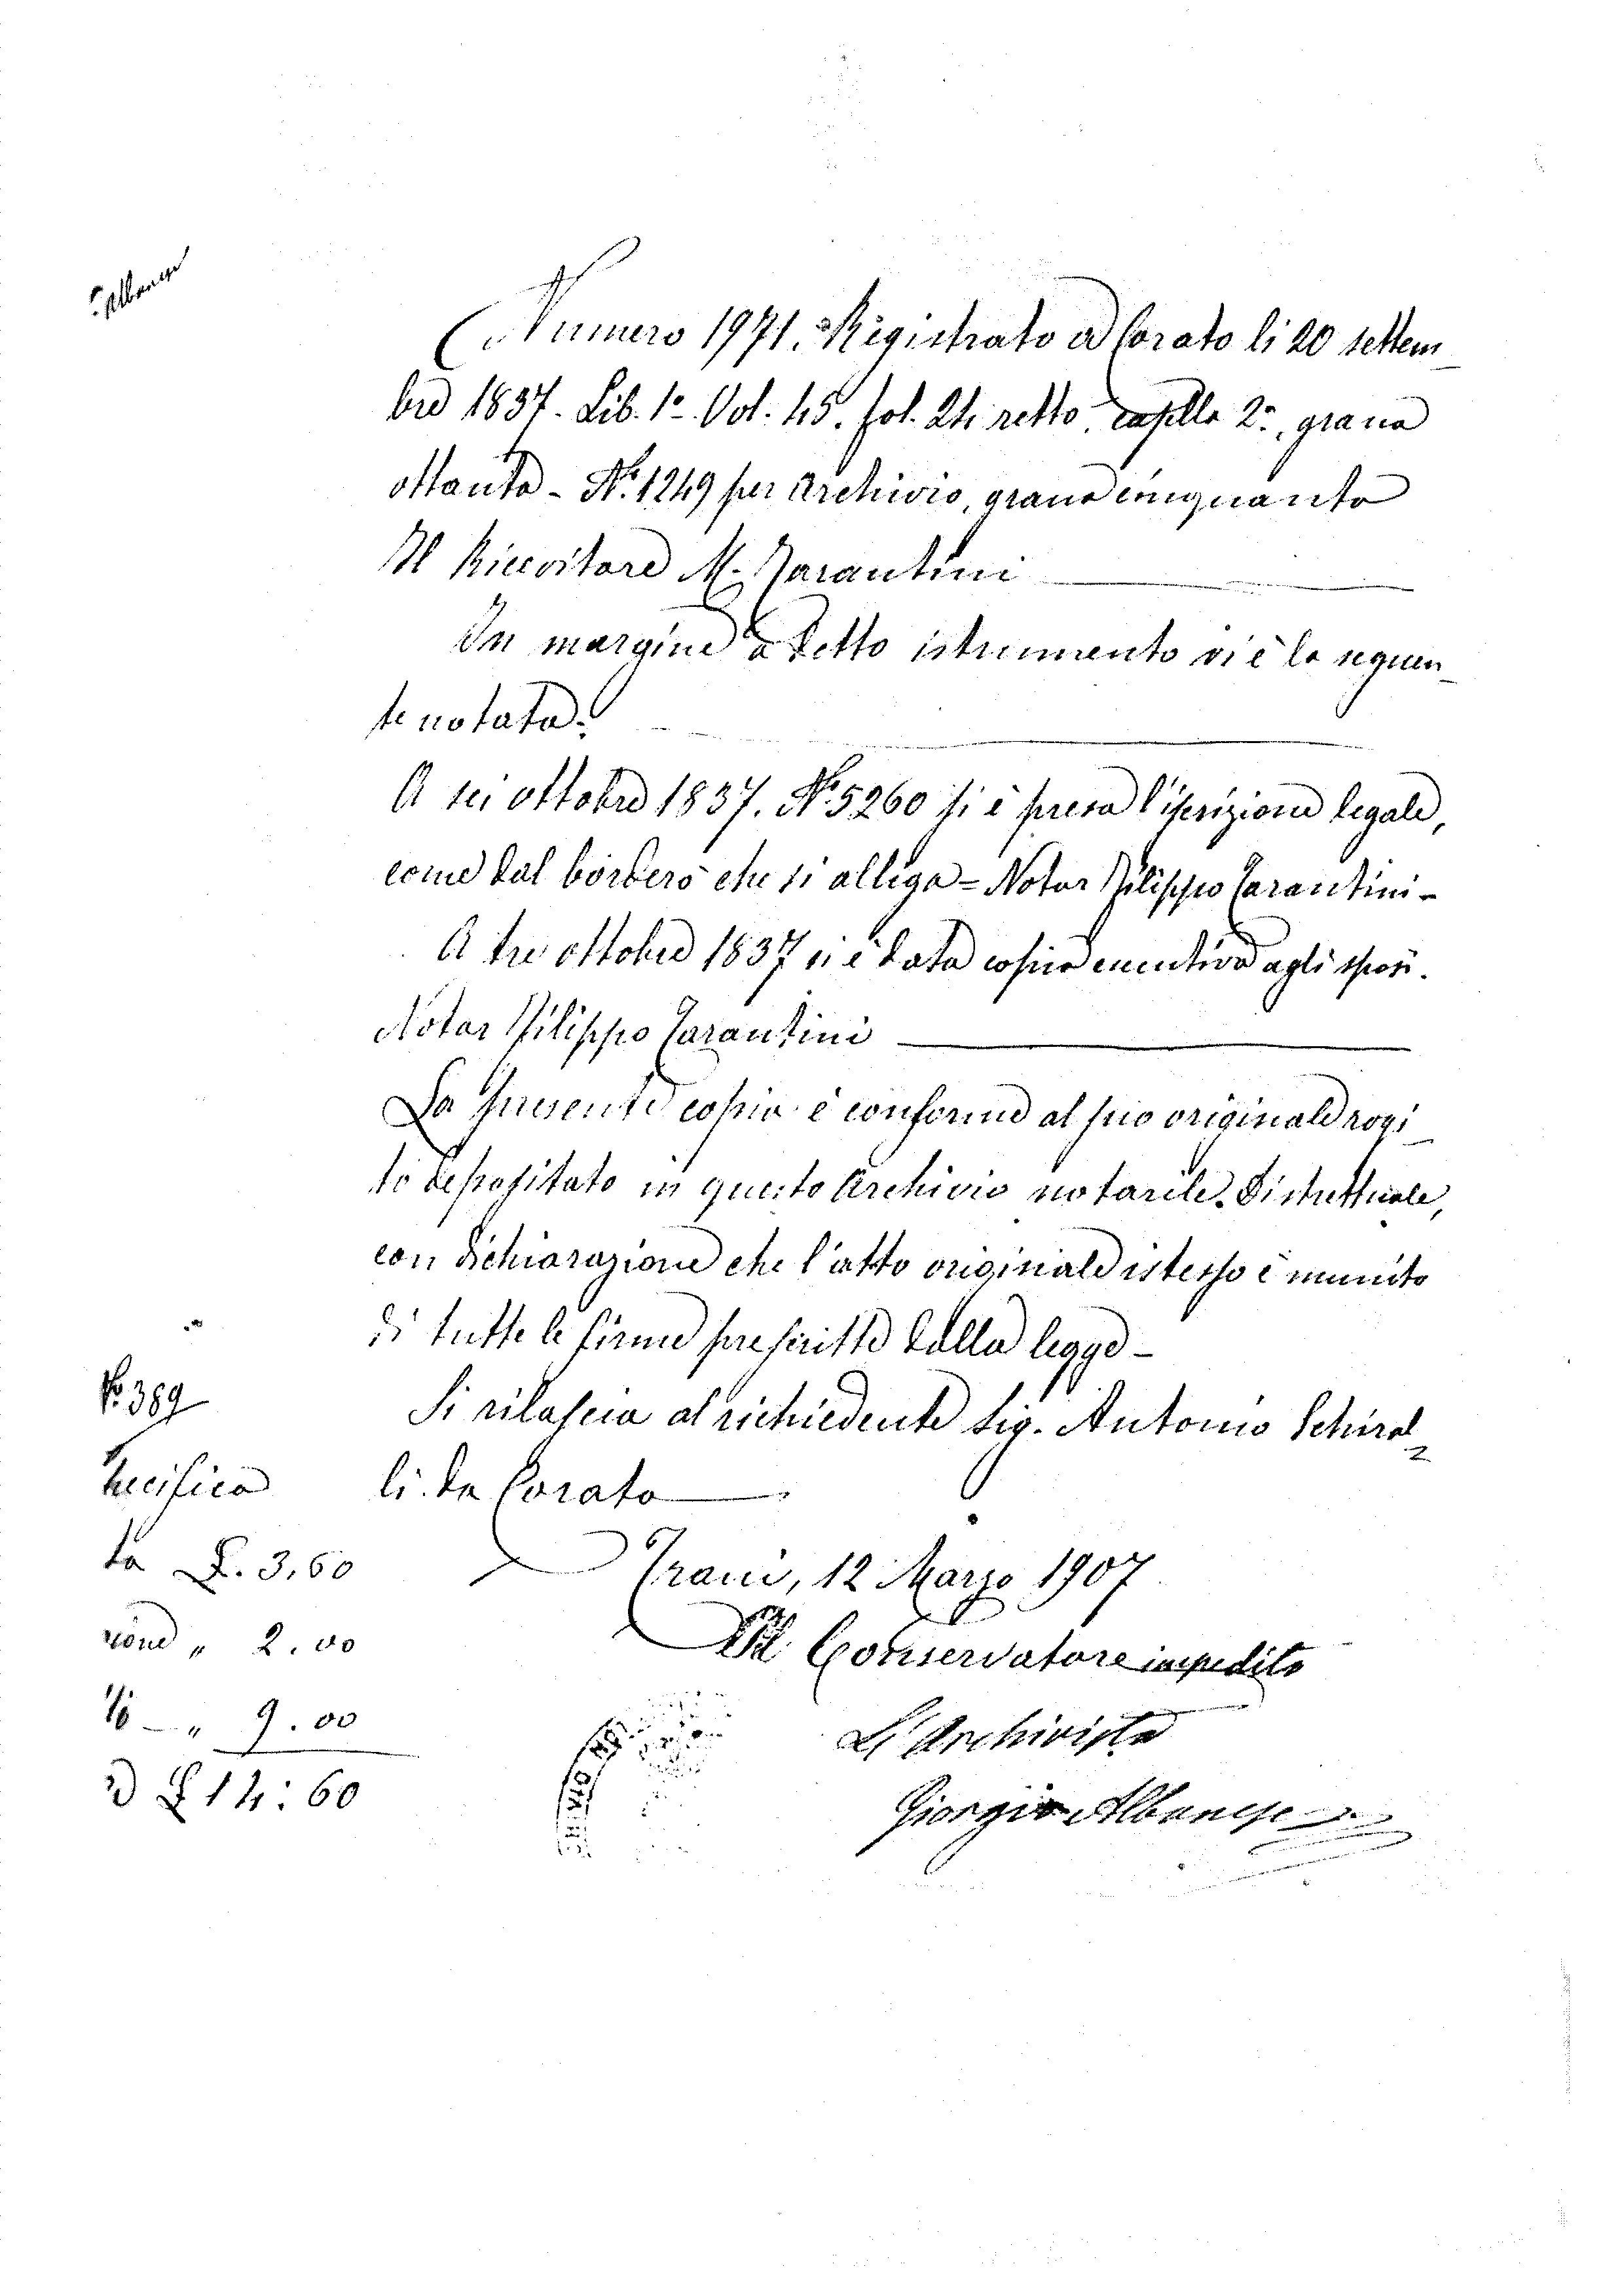 Albanese
Numero 1971. Registrato a Corato li 20 settem
bre 1837. Lib. 1º Vol. 45. fol. 24 retto casella 2ª, grana
ottanta - Nº 1249 per Archivio, grana cinquanta
Il Ricevitore M. Tarantini
In margine a detto istrumento vi è la seguen
te notata:
A sei ottobre 1837. Nº 5260 si è presa l'iscrizione legale,
come dal borderò che si alliga = Notar Filippo Tarantini -
A tre ottobre 1837 si è data copia esecutiva agli sposi.
Notar Filippo Tarantini
La presente copia è conforme al suo originale rogi
to depositato in questo Archivio notarile Distrettuale,
con dichiarazione che l'atto originale istesso è munito
di tutte le firme prescritte dalla legge -
Si rilascia al richiedente Sig. Antonio Schiral
li da Corato
Trani, 12 Marzo 1907
Il Conservatore impedito
L'Archivista
Giorgio Albanese
Nº 389
pecifica
ta L. 3,60
zione " 2.00
" 9.00
L 14:60